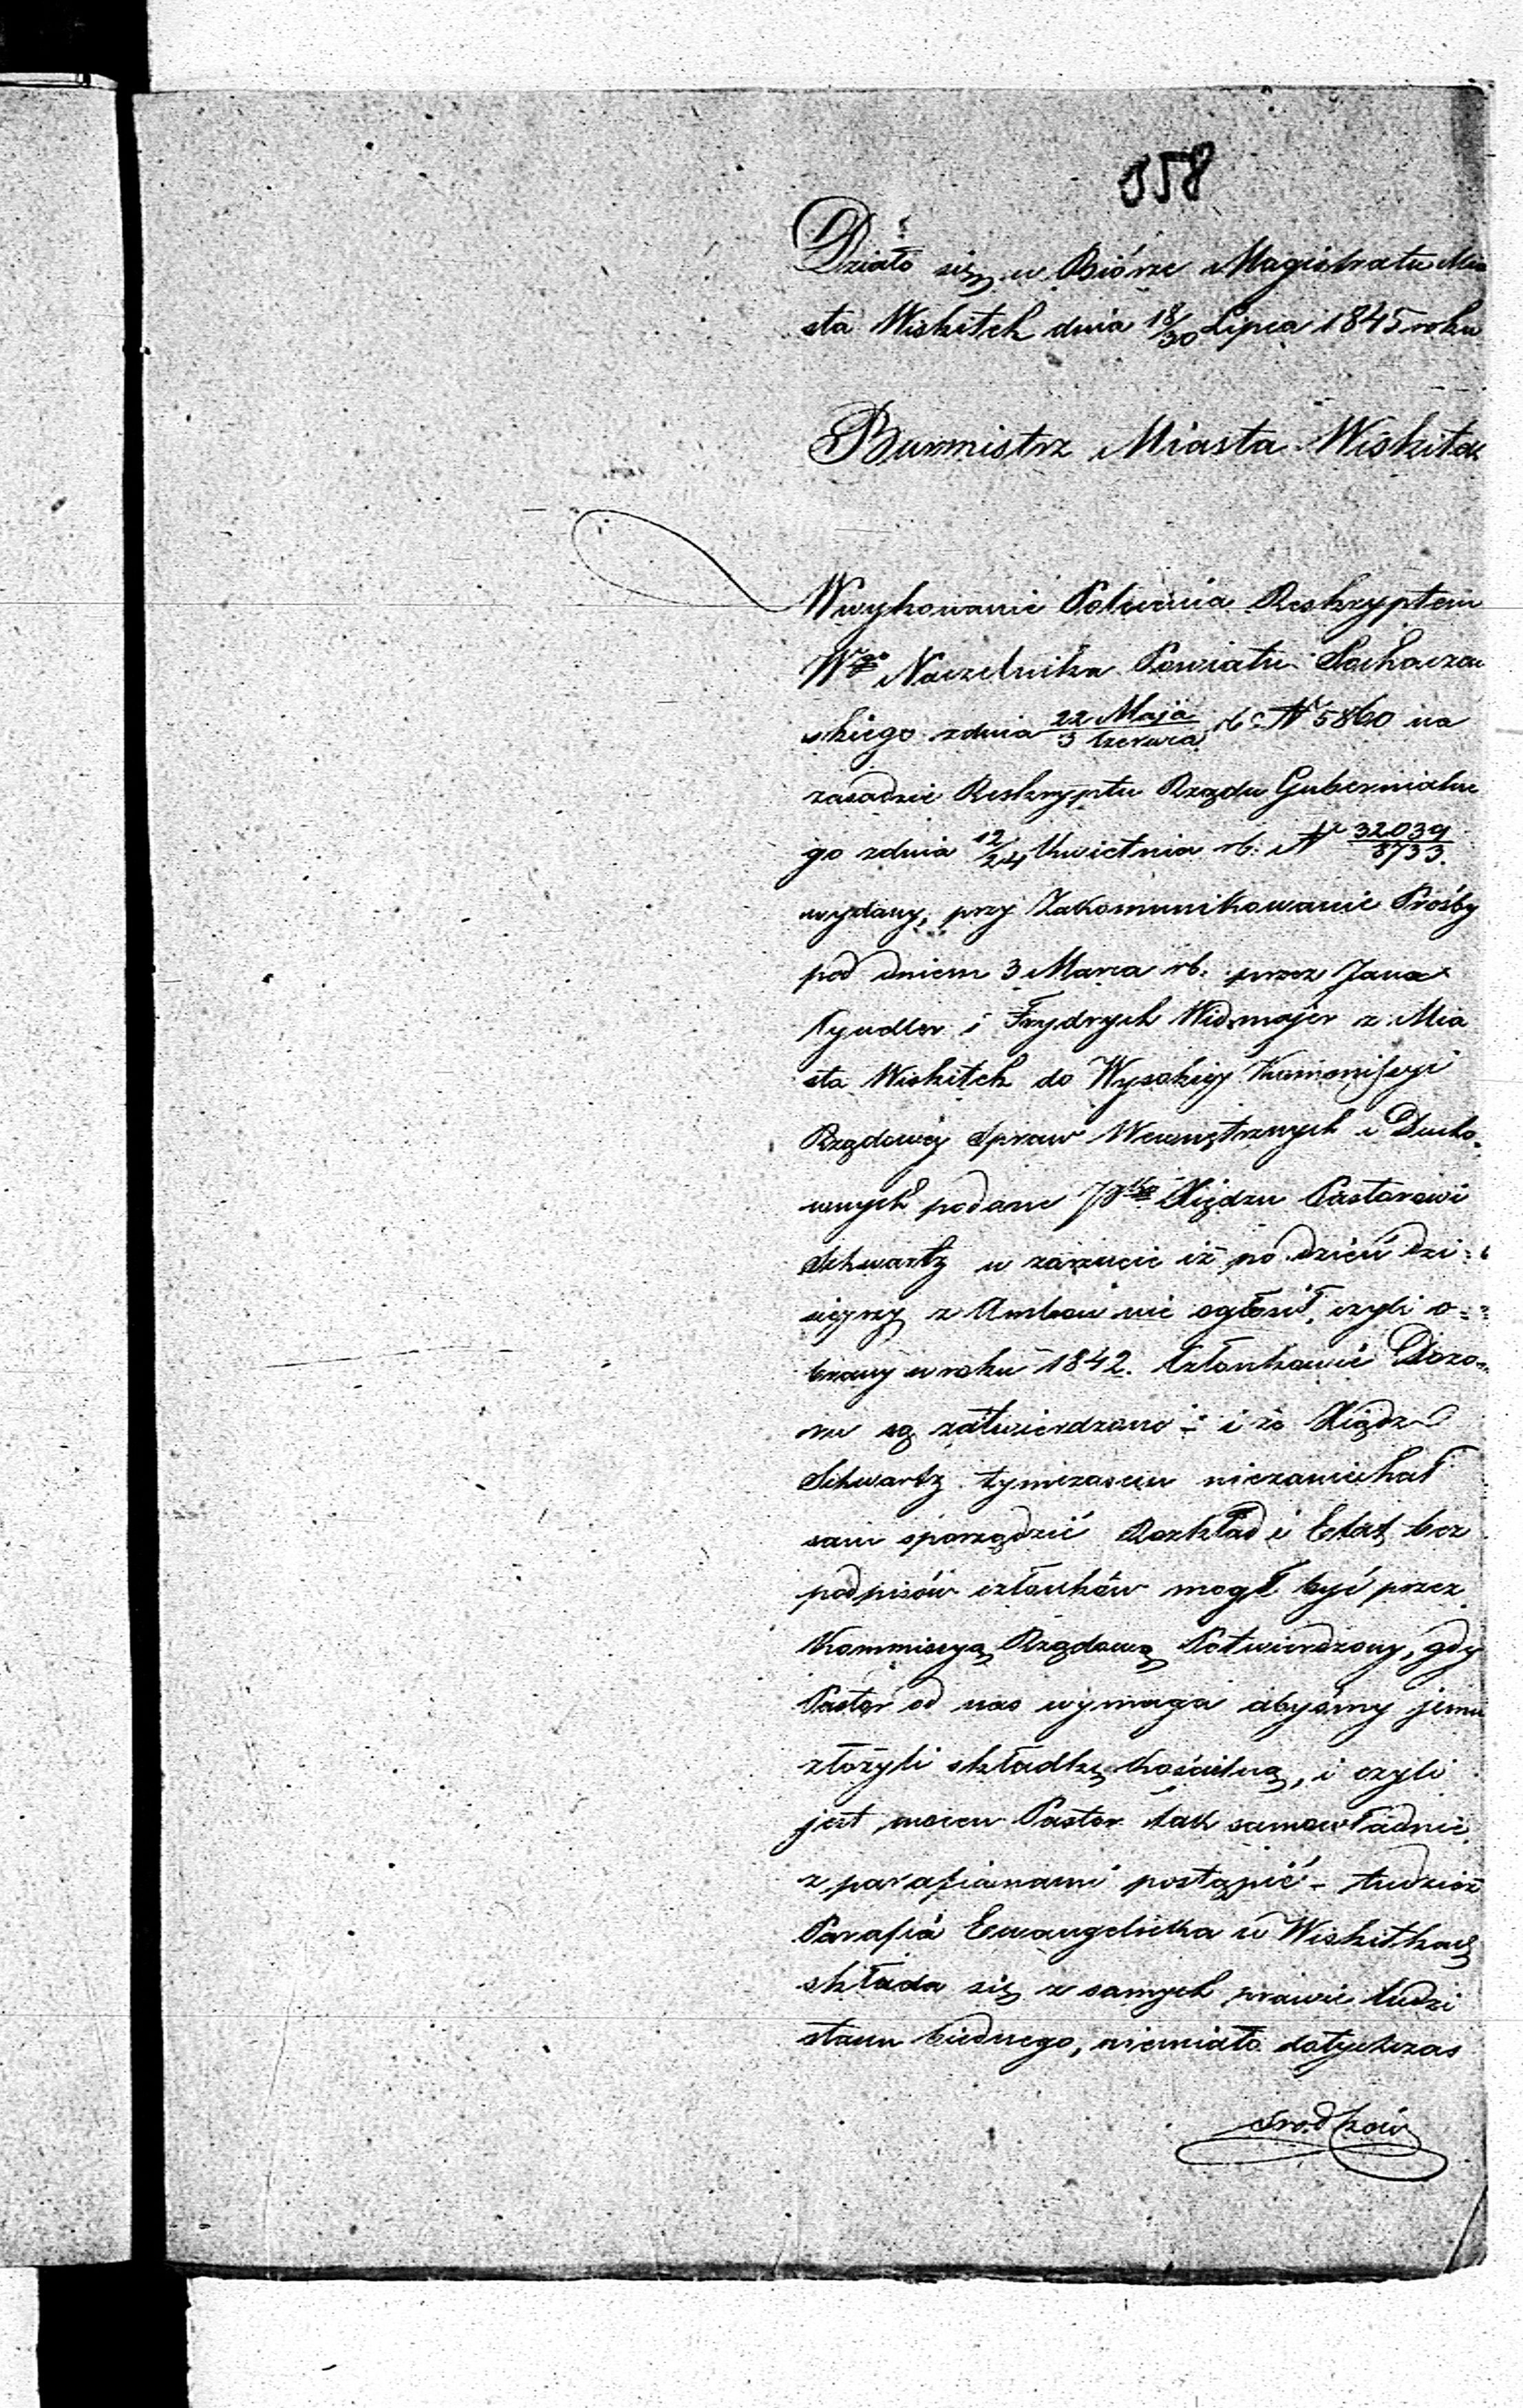 358
Działo się w Biórze Magistratu Mia
sta Wiskitek dnia 18/30 Lipca 1845 roku
Burmistrz Miasta Wiskitek
W wykonanie Polecenia Reskryptem
Wgo Naczelnika Powiatu Sochaczew
skiego z dnia 22 Maja/3 Czerwca rb: Nr 5860 na
zasadzie Reskryptu Rządu Gubernialne
go z dnia 12/24 Kwietnia rb: Nr 32039/8733.
wydany, przy Zakomunikowanie Prośby
pod dniem 3 Marca rb: przez Jana
i Frydrych Widmajer z Mia
sta Wiskitek do Wysokiey Kommissyi
Rządowéy Spraw Wewnętrznych i Ducho=
wnych podane Księdzu Pastorowi
Schwartz w zarzucie iż po dzień dzi=
sieyszy z Ambon nie ogłosił, czyli o=
brany w roku 1842. Członkowie Dozo=
ru są zatwierdzone – i że Xiądz
Schwartz tymczasem niezaniechał
sam sporządzić Rozkład i Etat bez
podpisów członków mogł być przez
Kommissyą Rządową Potwierdzony, gdy
Pastor od nas wymaga abyśmy jemu
złożyli składkę kościelną, i czyli
jest mocen Pastor tak samowładnie
z parafianami postąpić – tudzież
Parafia Ewangelicka w Wiskitkach
składa się z samych prawie ludzi
stanu biednego, niemiało dotychczas
srodków